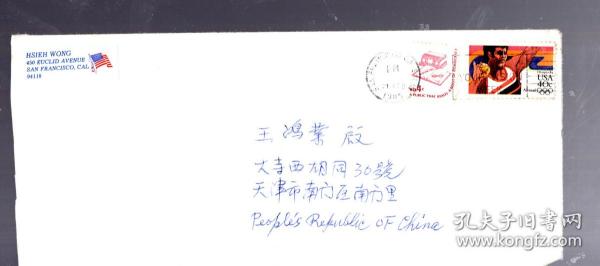 HSIEH WONG
450 EUCLID AVENUE
SAN FRANCISCO, CAL
94118
USA
40c
王鴻業 啟
大寺西胡同30號
天津市南门在南方里
People's Republic OF China
孔夫子旧书网
www.kongfz.com